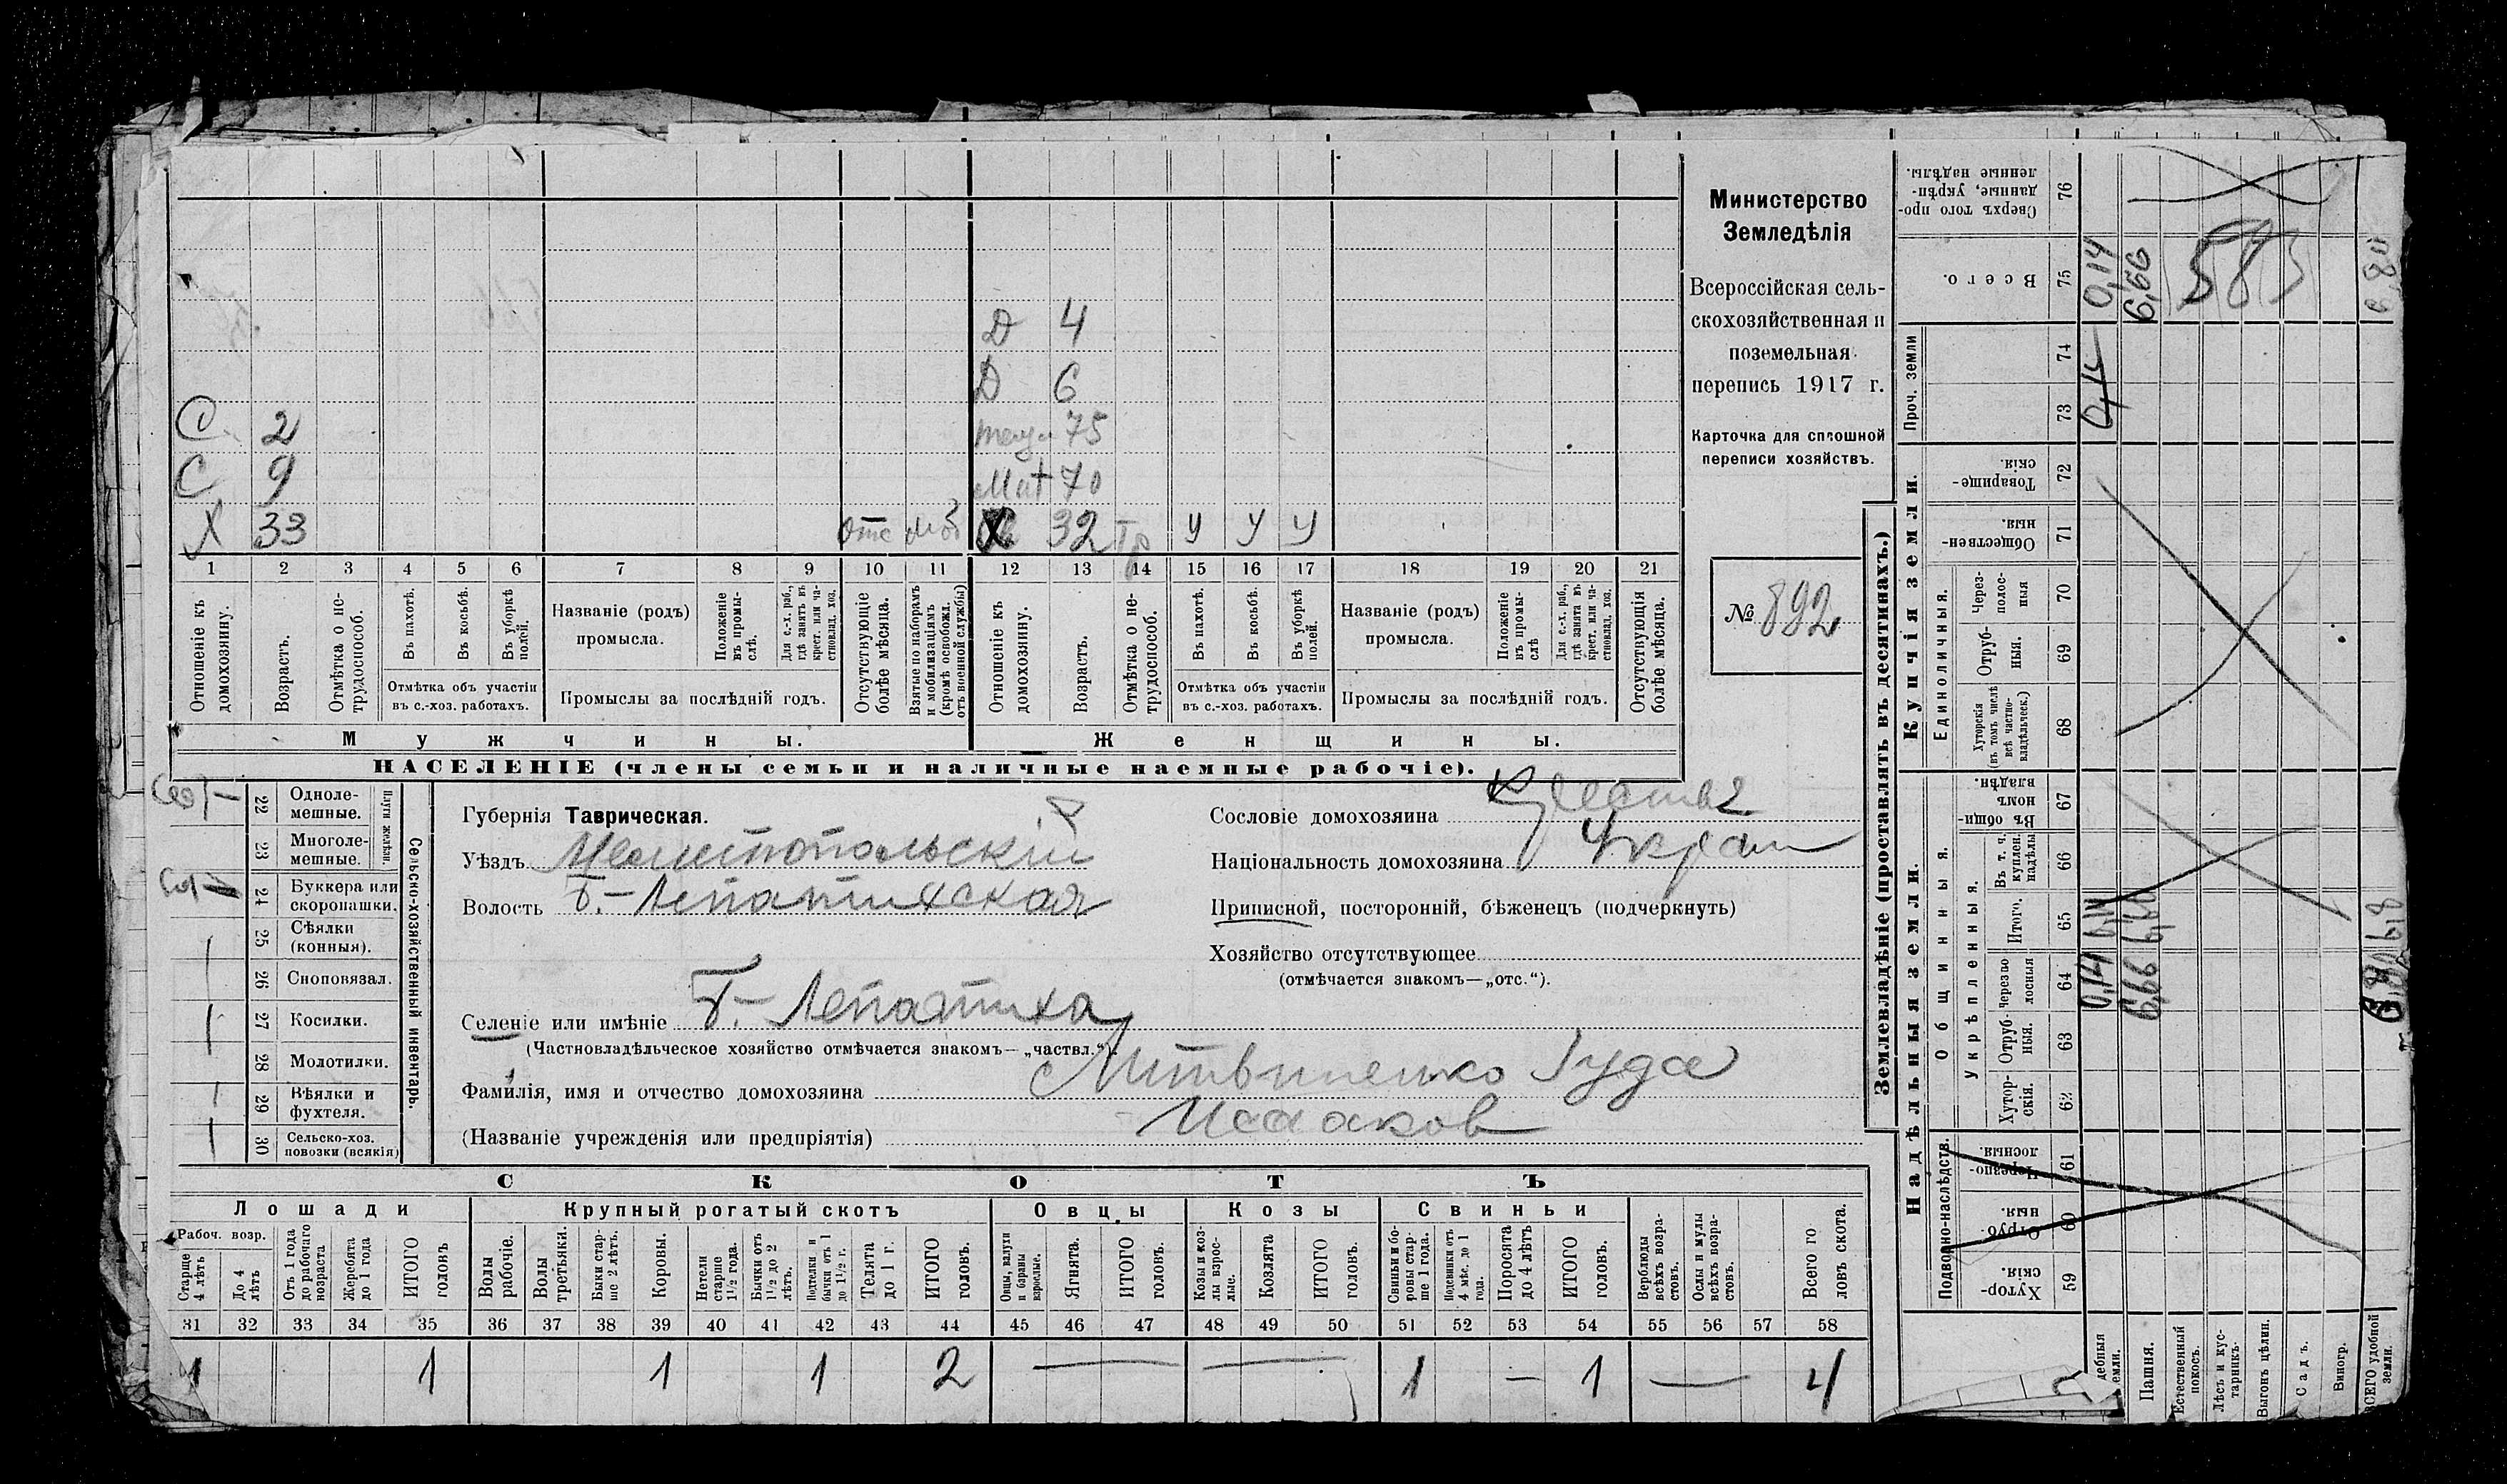 Д 4
Д 6
С 2 75
С 9 Мат 70
Х 33 отс моб Х 32 Тр У У У
1 2 3 4 5 6 7 8 9 10 11 12 13 14 15 16 17 18 19 20 21
Отношеніе къ домохозяину.
Возрастъ.
Отмѣтка о не-трудоспособ.
Въ пахотѣ.
Въ косьбѣ.
Въ уборкѣ полей.
Отмѣтка объ участіи въ с.-хоз. работахъ.
Названіе (родъ) промысла.
Положеніе въ промы-слѣ.
Для с.-х. раб., гдѣ занятъ въ крест. или ча-стновлад. хоз.
Промыслы за послѣдній годъ.
Отсутствующіе болѣе мѣсяца.
Взятые по наборамъ и мобилизаціямъ (кромѣ освобожд. отъ военной службы)
Отношеніе къ домохозяину.
Возрастъ.
Отмѣтка о не-трудоспособ.
Въ пахотѣ.
Въ косьбѣ.
Въ уборкѣ полей.
Отмѣтка объ участіи въ с.-хоз. работахъ.
Названіе (родъ) промысла.
Положеніе въ промы-слѣ
Для с.-х. раб., гдѣ занята въ крест. или ча-стновлад. хоз.
Промыслы за послѣдній годъ.
Отсутствующія болѣе мѣсяца.
Мужчины.
Женщины.
НАСЕЛЕНІЕ (члены семьи и наличные наемные рабочіе).
Министерство
Земледѣлія
Всероссійская сель-
скохозяйственная и
поземельная
перепись 1917 г.
Карточка для сплошной
переписи хозяйствъ.
№ 892
22 Одноле-мешные.
23 Многоле-мешные.
Плуги желѣзн.
24 Буккера или скоропашки.
25 Сѣялки (конныя).
26 Сноповязал.
27 Косилки. 1
28 Молотилки.
29 Вѣялки и фухтеля. 1
30 Сельско-хоз. повозки (всякія) 1
Сельско-хозяйственный инвентарь.
Губернія Таврическая.
Уѣздъ Мелитопольскій
Волость Б.-Лепатихская
Селеніе или имѣніе Б.-Лепатиха
(Частновладѣльческое хозяйство отмѣчается знакомъ—„частвл.“).
Фамилія, имя и отчество домохозяина Литвиненко Іуда
(Названіе учрежденія или предпріятія) Исааков
Сословіе домохозяина
Національность домохозяина Украин
Приписной, посторонній, бѣженецъ (подчеркнуть)
Хозяйство отсутствующее
(отмѣчается знакомъ—„отс.“).
СКОТЪ
Лошади
Крупный рогатый скотъ
Овцы
Козы
Свиньи
Рабоч. возр.
Старше 4 лѣтъ
До 4 лѣтъ
Отъ 1 года до рабочаго возраста
Жеребята до 1 года
ИТОГО головъ
Волы рабочіе.
Волы третьяки.
Быки стар-ше 2 лѣтъ.
Коровы.
Нетели старше 1½ года.
Бычки отъ 1½ до 2 лѣтъ.
Подтелки и бычки отъ 1 до 1½ г.
Телята до 1 г.
ИТОГО головъ.
Овцы, валухи и бараны взрослые.
Ягнята.
ИТОГО головъ.
Козы и коз-лы взрос-лые.
Козлята
ИТОГО головъ.
Свиньи и бо-ровы стар-ше 1 года.
Подсвинки отъ 4 мѣс. до 1 года.
Поросята до 4 лѣтъ
ИТОГО головъ.
Верблюды всѣхъ возра-стовъ.
Ослы и мулы всѣхъ возра-стовъ.
Всего го ловъ скота.
31 32 33 34 35 36 37 38 39 40 41 42 43 44 45 46 47 48 49 50 51 52 53 54 55 56 57 58
1 1 1 1 2 — — 1 — 1 — 4
Землевладѣніе (проставлять въ десятинахъ.)
Надѣльныя земли.
Купчія земли.
Проч. земли
Подворно-наслѣдств.
Общинныя.
Укрѣпленныя.
Единоличныя.
Сверхъ того про-данные, укрѣп-ленные надѣлы. 76
Всего. 75 0,14 6,66 583 6,80
74
73 0,14
Товарище-скія 72
Обществен-ныя. 71
Через-полос-ныя 70
Отруб-ныя. 69
Хуторскія (въ томъ числѣ всѣ частно-владѣльческ.) 68
Въ общин-номъ владѣн. 67
Въ т. ч. куплен. надѣлы 66
Итого. 65 6,8
Черезпо лосныя 64 0,14 6,66
Отруб-ныя. 63
Хутор-скія. 62
Черезпо-лосныя. 61
Отруб-ныя. 60
Хутор-скія. 59
дебныя земли.
Пашня.
Естественный покосъ.
Лѣсъ и кус-тарникъ.
Выгонъ цѣлин.
Садъ.
Виногр.
ВСЕГО удобной земли.